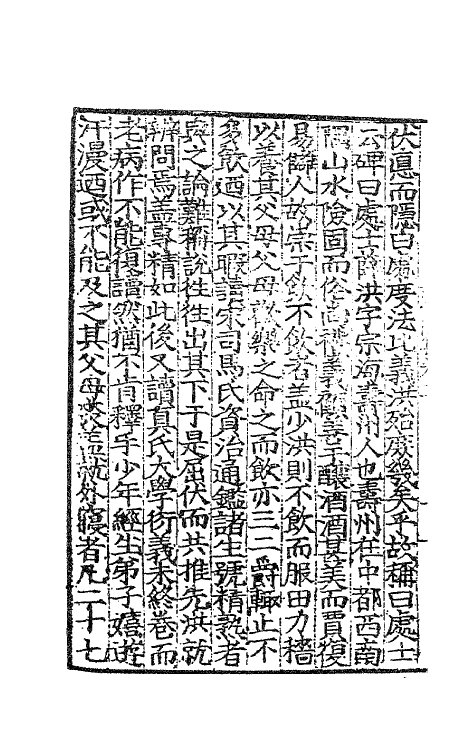 伏息而隱曰處度法比義洪始庶幾矣乎故稱曰處士
云碑曰處士薛洪字宗海壽州人也壽州在中都西南
山水險固而俗尚禮義猶善于釀酒酒甚美而賈復
易隣人故崇于飲不飲者蓋少洪則不飲而服田力穡
以養其父母父母歡樂之命之而飲亦三二爵輒止不
多飲迺以其暇讀宋司馬氏資治通鑑諸生號精熟者
與之論難稱說徃徃出其下于是屈伏而共推先洪就
辨問焉蓋專精如此後又讀真氏大學衍義未終卷而
老病作不能復讀然猶不肯釋手少年經生弟子嬉遊
汗漫迺或不能及之其父母蓋就外寢者凡二十七